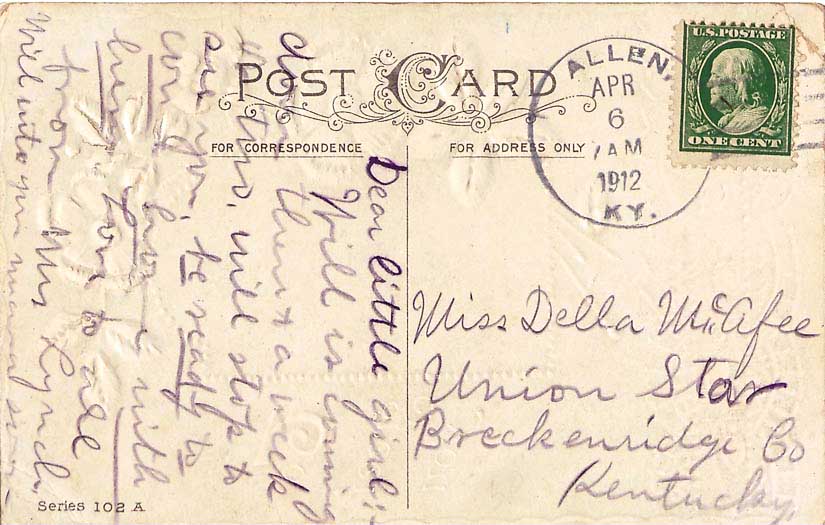 POST CARD
FOR CORRESPONDENCE
FOR ADDRESS ONLY
ALLEN, KY.
APR
6
7 AM
1912
U.S. POSTAGE
ONE CENT
Dear little girl;
Will is coming
down a week
or two, will stop to
see you, be ready to
come home with
him. Love to all
from Mrs Lynch
Will write you more soon
Miss Della McAfee
Union Star
Breckenridge Co
Kentucky
Series 102 A